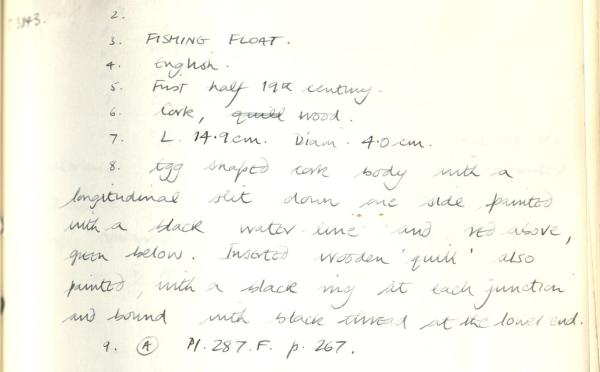 3143.
2.
3. FISHING FLOAT.
4. English.
5. First half 19th century.
6. Cork, quill wood.
7. L. 14.9cm. Diam. 4.0cm.
8. Egg shaped cork body with a
longitudinal slit down one side painted
with a black water-line and red above,
green below. Inserted wooden 'quill' also
painted, with a black ring at each junction
and bound with black thread at the lower end.
9. A Pl. 287.F. p. 267.